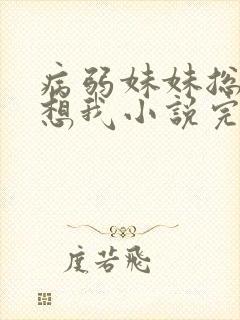 病弱妹妹总
想我小说完
度若飛